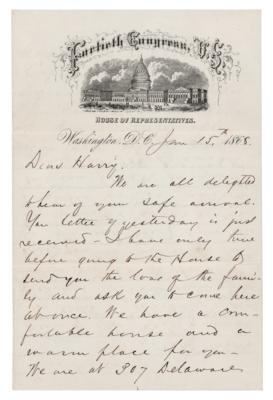 Fortieth Congress, U.S.
HOUSE OF REPRESENTATIVES.
Washington, D.C. Jan 15th 1868
Dear Harry.
We are all delighted
to hear of your safe arrival.
You letter of yesterday is just
received - I have only time
before going to the House to
send you the love of the fami-
ly and ask you to come here
at once. We have a com-
fortable house and a
warm place for you-
We are at 307 Delaware